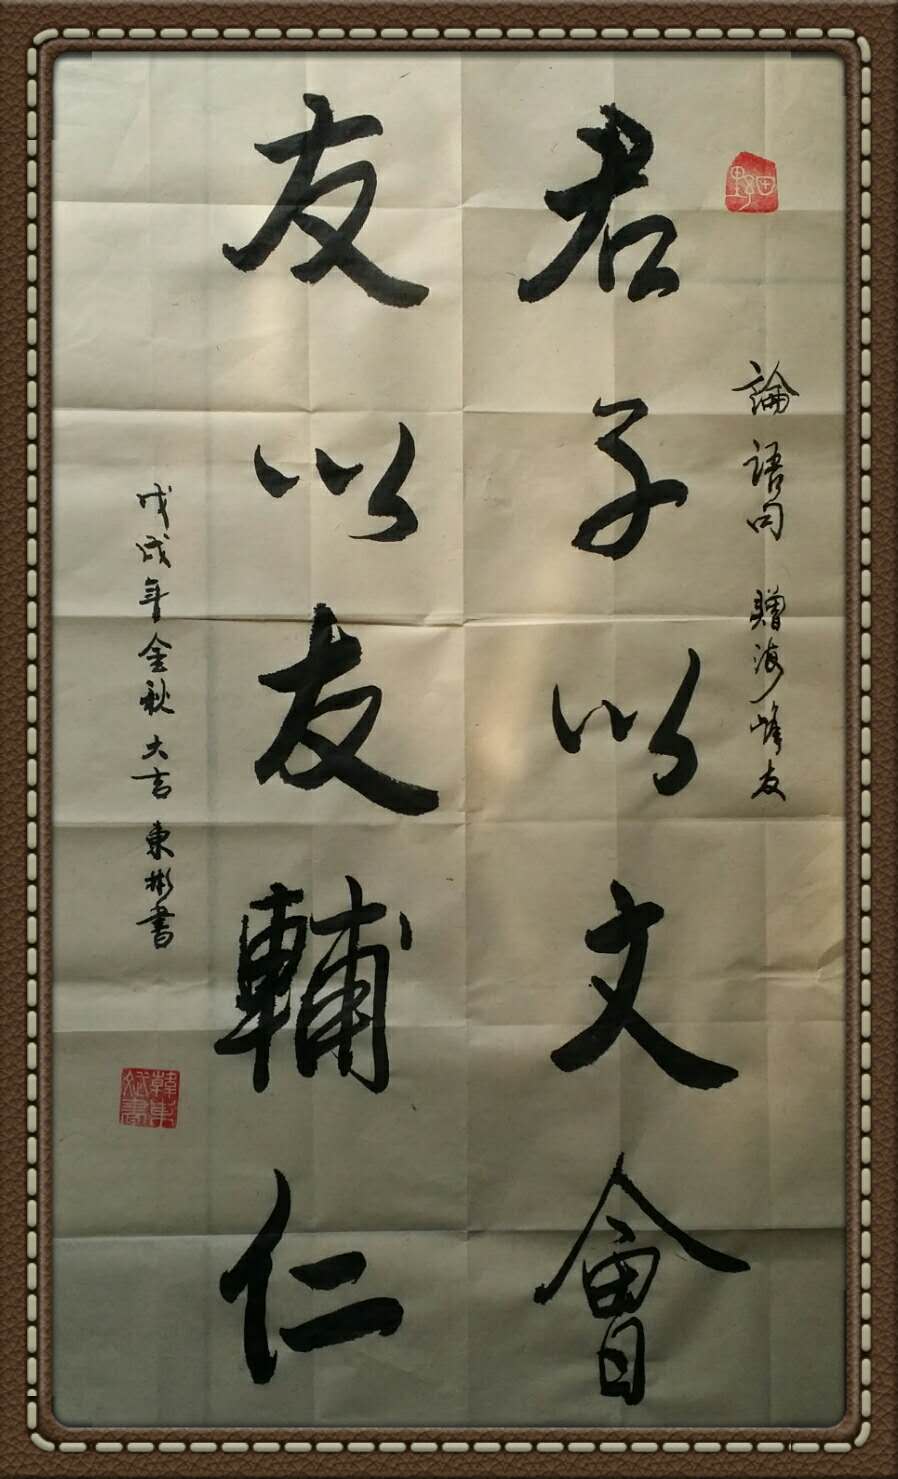 論語句 贈海峰友
君子以文會
友以友輔仁
戊戌年金秋 大言 東彬書
韓東斌書